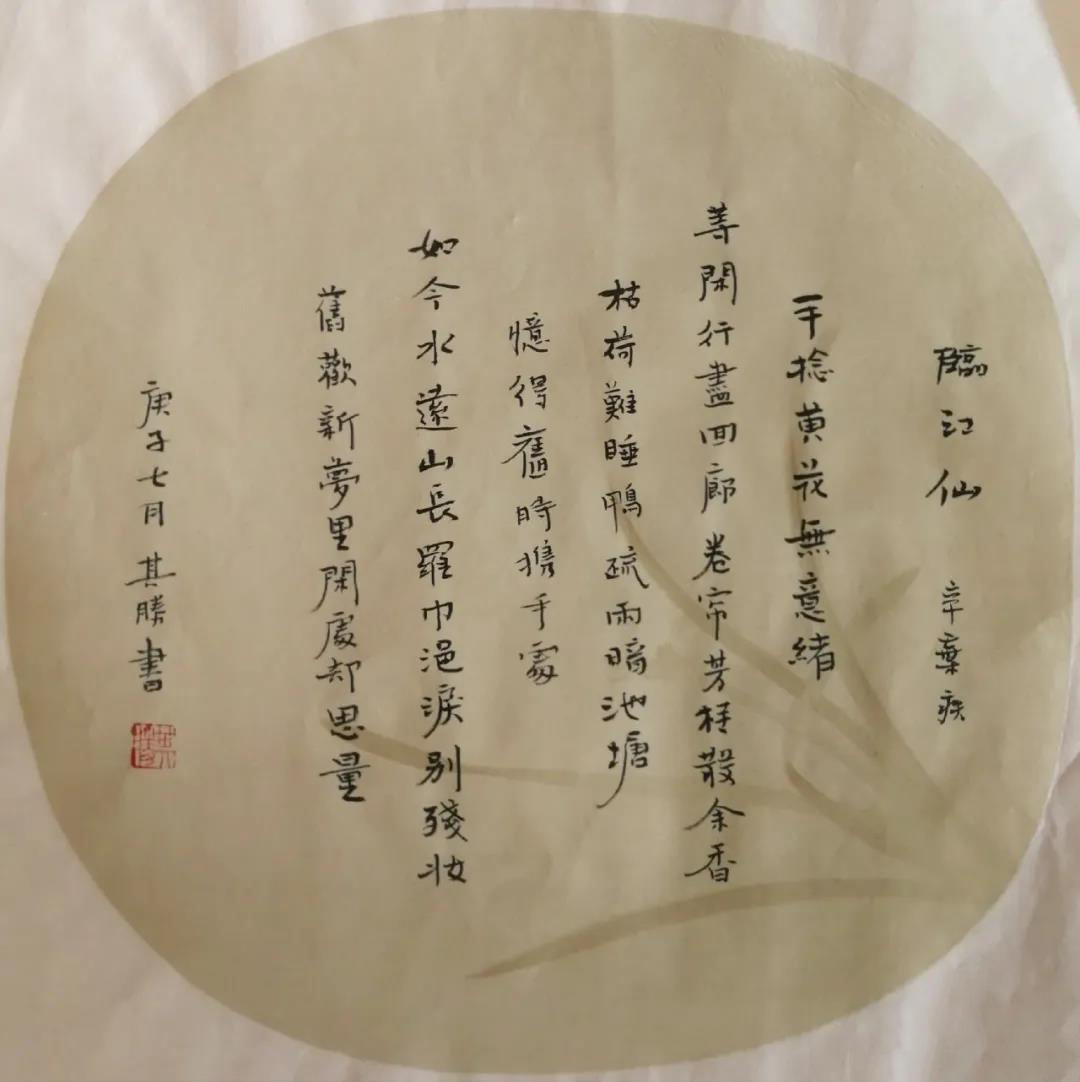 臨江仙 辛棄疾
手捻黄花無意緒
等閑行盡回廊卷帘芳桂散余香
枯荷難睡鴨疏雨暗池塘
憶得舊時携手處
如今水遠山長羅巾浥淚别殘妝
舊歡新夢里閑處却思量
庚子七月其勝書